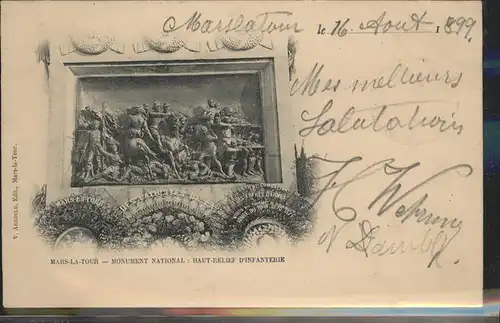 Marslatour le 16 Aout 1899
Mes meilleurs
Salutations
H Wehrung
MARS-LA-TOUR — MONUMENT NATIONAL : HAUT-RELIEF D'INFANTERIE